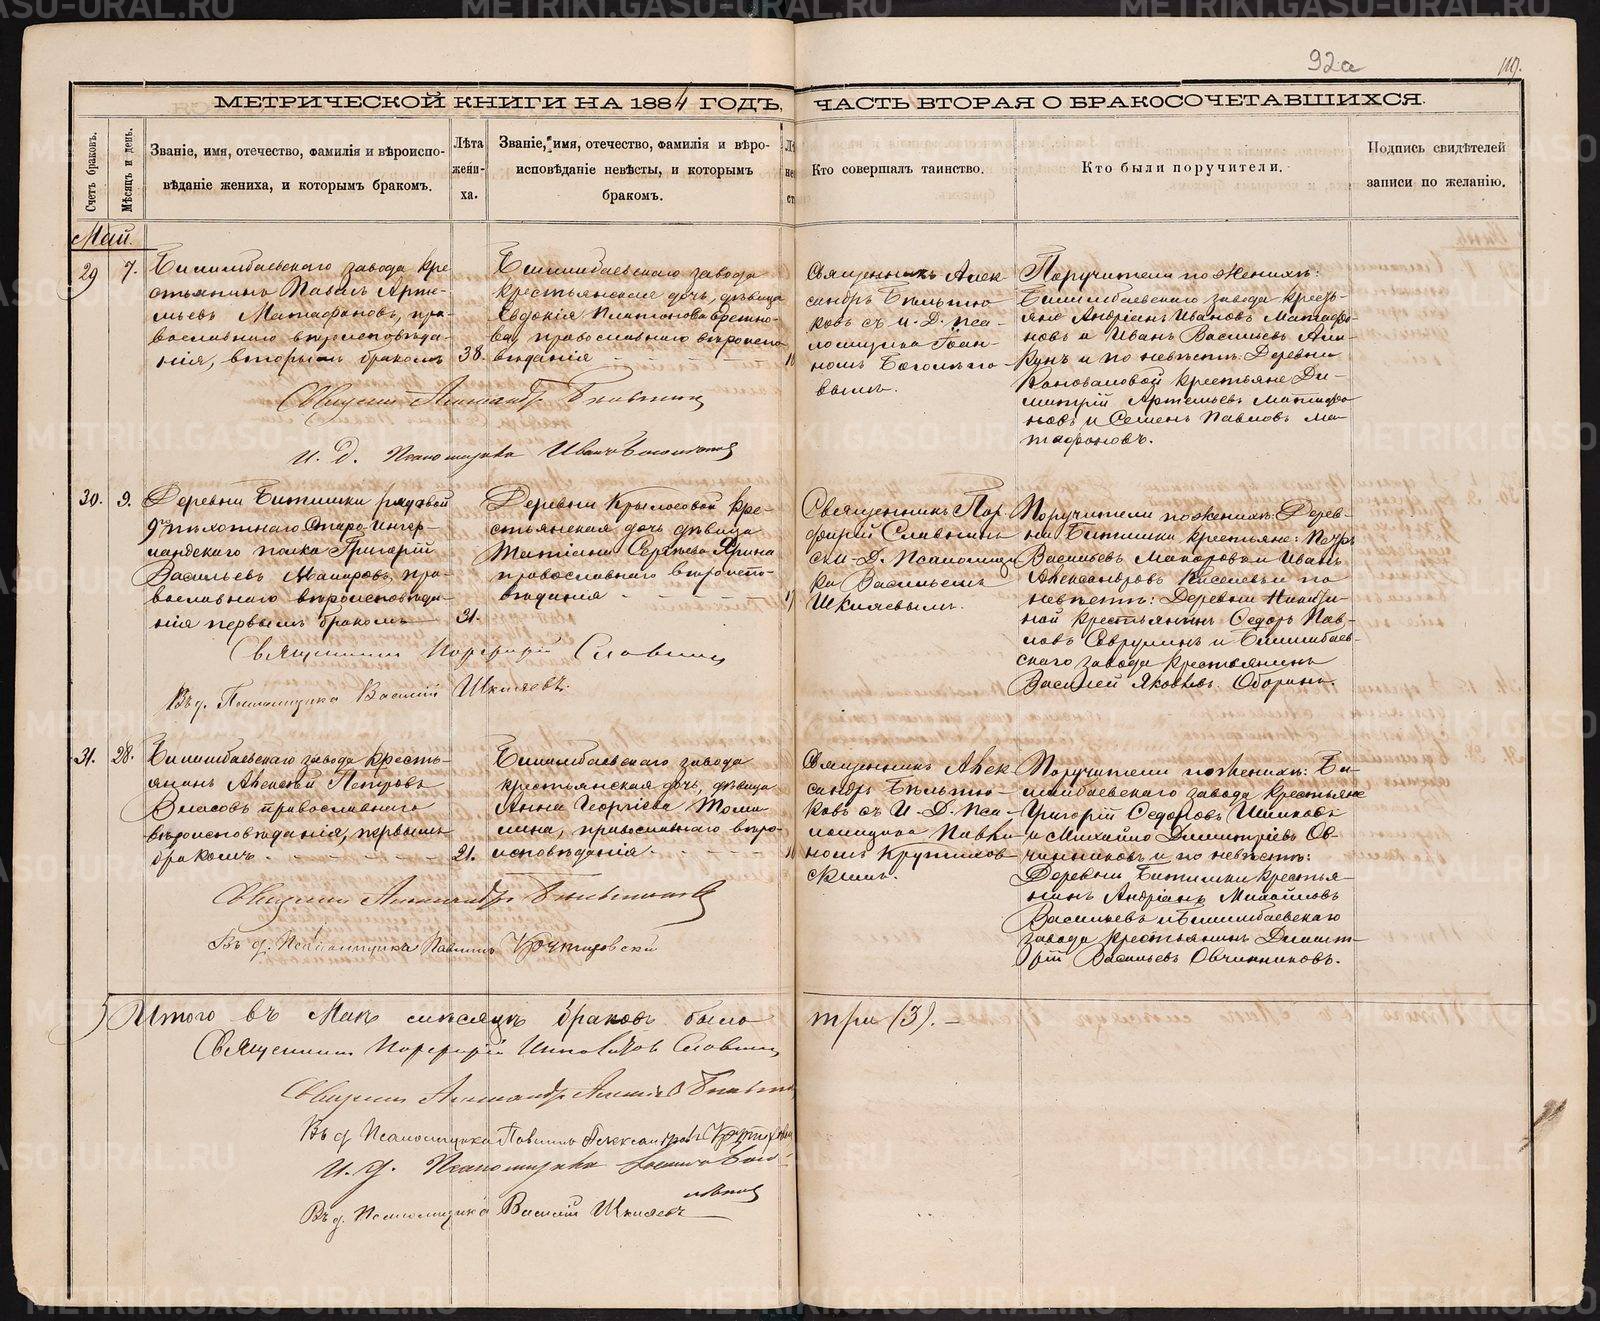 92а
МЕТРИЧЕСКОЙ КНИГИ НА 1884 ГОДЪ,
ЧАСТЬ ВТОРАЯ О БРАКОСОЧЕТАВШИХСЯ.
Счетъ браковъ.
Мѣсяцъ и день.
Званіе, имя, отечество, фамилія и вѣроиспо-
вѣданіе жениха, и которымъ бракомъ.
Лѣта
жени-
ха.
Званіе, имя, отечество, фамилія и вѣро-
исповѣданіе невѣсты, и которымъ
бракомъ.
Кто совершалъ таинство.
Кто были поручители.
Подпись свидѣтелей
записи по желанію.
Май.
29
7.
Билимбаевскаго завода кре
стьянинъ Павелъ Арте-
мьевъ Матафоновъ, пра-
вославнаго вѣроисповѣда-
нія, вторымъ бракомъ
38.
Билимбаевскаго завода
крестьянская дочь, дѣвица
Евдокія Платонова
православнаго вѣроиспо-
вѣданія
Священникъ Алек
сандръ Бѣльтю
ковъ съ и. д. пса-
ломщика Іоан-
номъ Боголѣпо-
вымъ.
Поручители по женихѣ:
Билимбаевскаго завода кресть-
яне Андріанъ Ивановъ Матафо-
новъ и Иванъ Васильевъ
и по невѣстѣ: Деревни
Коноваловой крестьяне Ди-
митрій Артемьевъ Матафо
новъ и Семенъ Павловъ Ма-
тафоновъ.
Священникъ Александръ Бѣльтюковъ
И. д. Псаломщика Иванъ Боголѣповъ
30.
9.
Деревни Битимки рядовой
9го пѣхотнаго Старо-Ингер-
ландскаго полка Григорій
Васильевъ Макаровъ, пра-
вославнаго вѣроисповѣда-
нія первымъ бракомъ
31.
Деревни Крылосовой кре-
стьянская дочь дѣвица
Татіана Сергѣева Ярина
православнаго вѣроиспо-
вѣданія
Священникъ Пор
фирій Славнинъ
съ и. д. Псаломщи
ка Васильемъ
Шкляевымъ.
Поручители по женихѣ: Дерев-
ни Битимки крестьяне: Петръ
Васильевъ Макаровъ и Иванъ
Александровъ Киселевъ и по
невѣстѣ: Деревни
крестьянинъ Ѳедоръ Пав-
ловъ Севрулинъ и Билимбаев-
скаго завода крестьянинъ
Василей Яковлевъ Оборинъ.
Священникъ Порфирій Славнинъ
Въ д. Псаломщика Василій Шкляевъ.
31.
28.
Билимбаевскаго завода кресть-
янинъ Алексѣй Петровъ
Власовъ православнаго
вѣроисповѣданія, первымъ
бракомъ
21.
Билимбаевскаго завода
крестьянская дочь, дѣвица
Анна Георгіева Томи
лина, православнаго вѣро-
исповѣданія
Священникъ Алек
сандръ Бѣльтю-
ковъ съ И. Д. пса-
ломщика Павли
номъ Крутихов-
скимъ.
Поручители по женихѣ: Би-
лимбаевскаго завода крестьяне
Григорій Ѳедоровъ
и Михайло Димитріевъ Ов-
чинниковъ и по невѣстѣ:
Деревни Битимки крестья-
нинъ Андріанъ Михайловъ
Васильевъ и Билимбаевскаго
завода крестьянинъ Димит-
рій Васильевъ Овчинниковъ.
Священникъ Александръ Бѣльтюковъ
Въ д. Псаломщика Павлинъ Крутиховскій
Итого въ Маѣ мѣсяцѣ браковъ было
три (3).
Священникъ Порфирій Славнинъ
Священникъ Александръ Бѣльтюковъ
Въ д. Псаломщика Павлинъ Александровъ
И. д. Псаломщика
Въ д. Псаломщика Василій Шкляевъ
METRIKI.GASO-URAL.RU